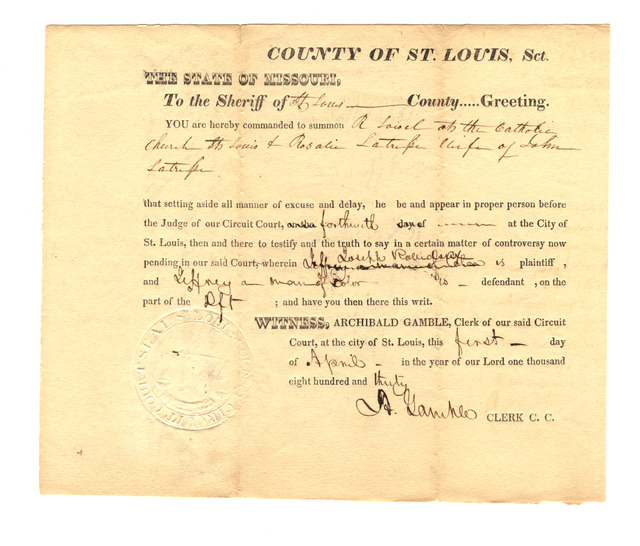 COUNTY OF ST. LOUIS, Sct.
THE STATE OF MISSOURI,
To the Sheriff of St Louis County.....Greeting.
YOU are hereby commanded to summon R at the Catholic
Church St Louis & Rosalie Latresse Wife of John
Latresse
that setting aside all manner of excuse and delay, he be and appear in proper person before
the Judge of our Circuit Court, forthwith day of at the City of
St. Louis, then and there to testify and the truth to say in a certain matter of controversy now
pending in our said Court, wherein Joseph is plaintiff,
and Jeffrey a man of Color is defendant, on the
part of the Dft ; and have you then there this writ.
WITNESS, ARCHIBALD GAMBLE, Clerk of our said Circuit
Court, at the city of St. Louis, this first day
of April in the year of our Lord one thousand
eight hundred and thirty
A. Gamble CLERK C. C.